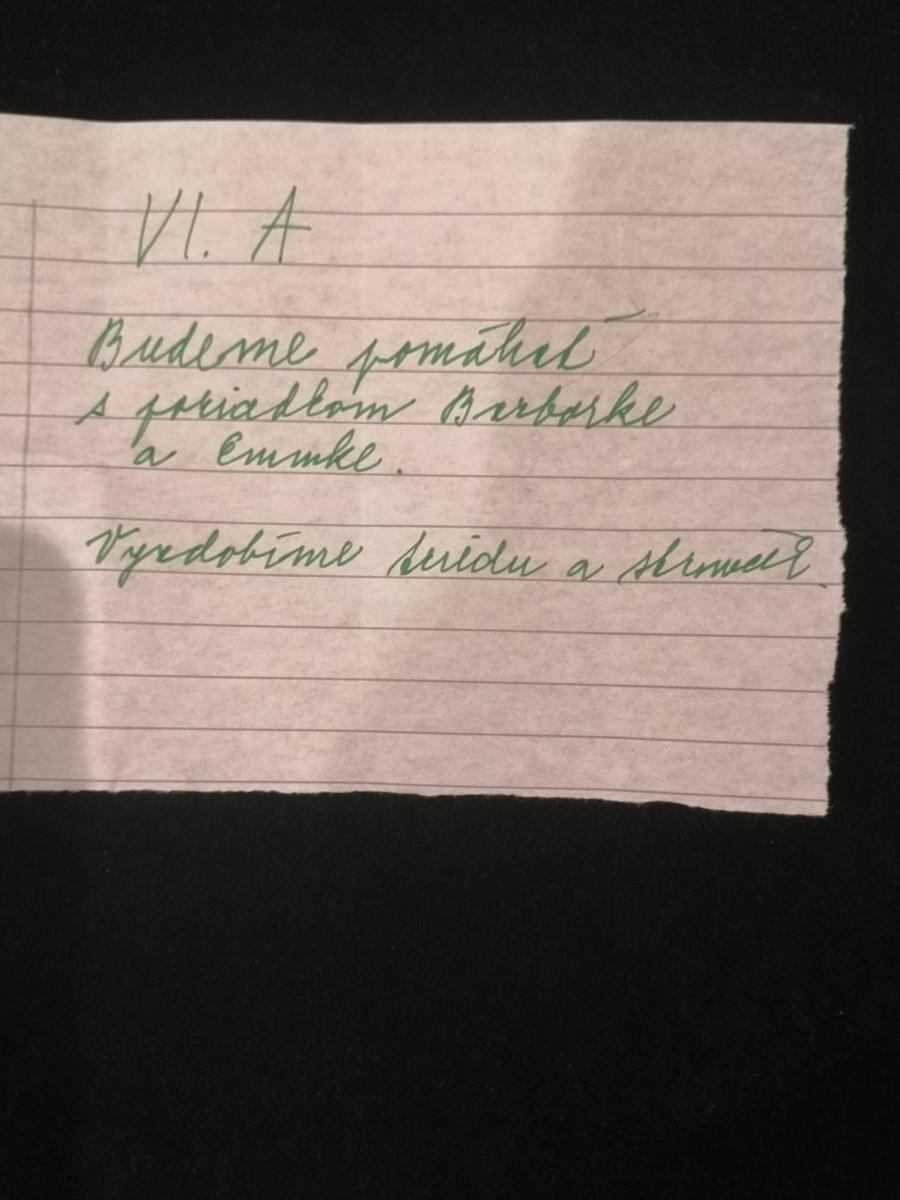 VI. A
Budeme pomáhať
s poriadkom Barborke
a Emmke.
Vyzdobíme triedu a stromček